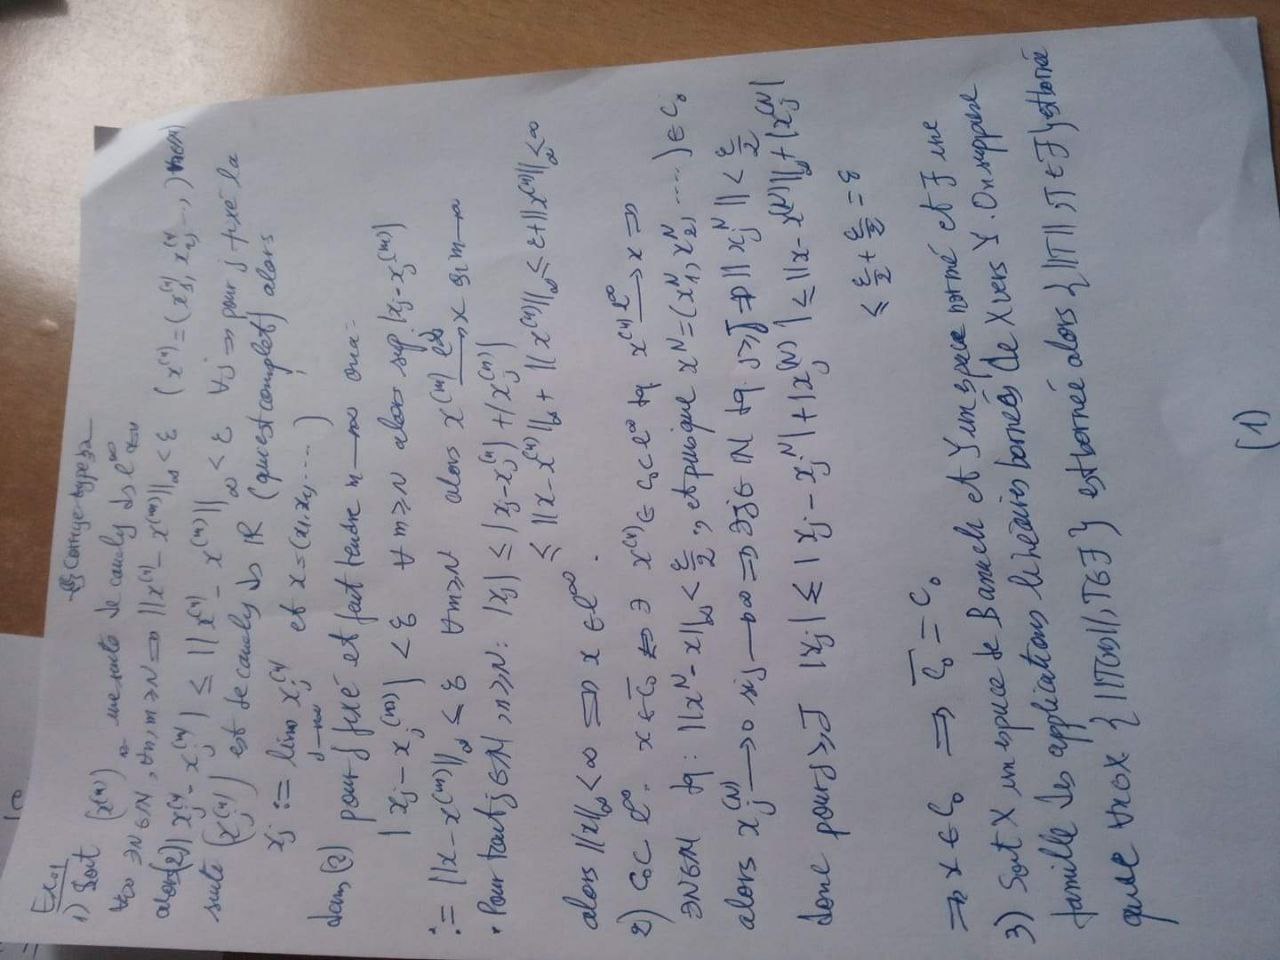 Corrigé type
Exo1
1) Soit (x⁽ⁿ⁾)ₙ une suite de cauchy ds ℓ^∞
∀ε>0 ∃N∈ℕ, ∀n,m ≥N ⇒ ||x⁽ⁿ⁾ - x⁽ᵐ⁾||_∞ < ε (x⁽ⁿ⁾ = (x₁⁽ⁿ⁾, x₂⁽ⁿ⁾, ...,)
alors (2) | x_j⁽ⁿ⁾ - x_j⁽ᵐ⁾ | ≤ || x⁽ⁿ⁾ - x⁽ᵐ⁾ ||_∞ < ε ∀j ⇒ pour j fixé la
suite (x_j⁽ⁿ⁾) est de cauchy ds ℝ (qui est complet) alors
x_j := lim x_j⁽ⁿ⁾ et x = (x₁, x₂, ....)
dans (2) pour j fixé et fait tendre n → ∞ on a :
| x_j - x_j⁽ᵐ⁾ | < ε ∀ m ≥ N alors sup |x_j - x_j⁽ᵐ⁾|
:= ||x - x⁽ᵐ⁾||_∞ ≤ ε ∀m≥N alors x⁽ᵐ⁾ →^{ℓ^∞} x qd m → ∞
• Pour tout j∈ℕ, n≥N : |x_j| ≤ |x_j - x_j⁽ⁿ⁾| + |x_j⁽ⁿ⁾|
≤ ||x - x⁽ⁿ⁾||_∞ + ||x⁽ⁿ⁾||_∞ ≤ ε + ||x⁽ⁿ⁾||_∞ < ∞
alors ||x||_∞ < ∞ ⇒ x ∈ ℓ^∞.
2) C₀ ⊂ ℓ^∞. x ∈ \overline{C₀} ⇔ ∃ x⁽ⁿ⁾ ∈ C₀ ⊂ ℓ^∞ tq x⁽ⁿ⁾ →^{ℓ^∞} x ⇒
∃N∈ℕ tq : ||x^N - x||_∞ < ε/2, et puisque x^N = (x₁^N, x₂^N, ....) ∈ C₀
alors x_j⁽ᴺ⁾ → 0 si j → ∞ ⇒ ∃J∈ℕ tq. j ≥ J ⇒ || x_j^N || < ε/2
donc pour j ≥ J |x_j| ≤ | x_j - x_j^N | + |x_j⁽ᴺ⁾ | ≤ ||x - x⁽ᴺ⁾||_∞ + |x_j⁽ᴺ⁾|
≤ ε/2 + ε/2 = ε
⇒ x ∈ C₀ ⇒ \overline{C₀} = C₀
3) Soit X un espace de Banach et Y un espace normé et F une
famille des applications linéaires bornées de X vers Y. On suppose
que ∀x∈X { ||T(x)||, T∈F } est bornée alors { ||T||, T∈F } est bornée
(1)